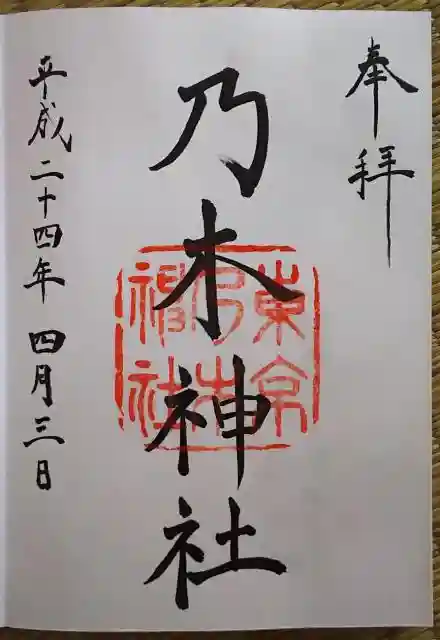 奉拝
乃木神社
東京乃木神社
平成二十四年 四月三日